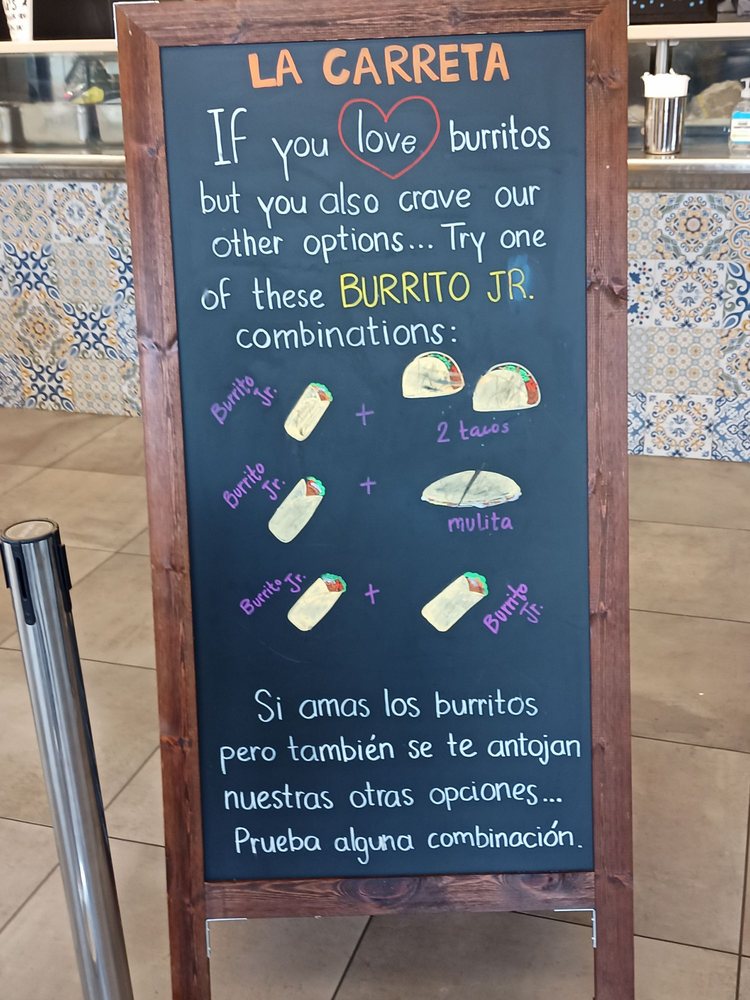 LA CARRETA
If you love burritos
but you also crave our
other options... Try one
of these BURRITO JR.
combinations:
Burrito Jr. + 2 tacos
Burrito Jr. + mulita
Burrito Jr. + Burrito Jr.
Si amas los burritos
pero también se te antojan
nuestras otras opciones...
Prueba alguna combinación.